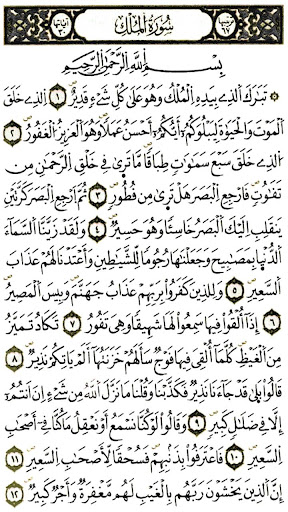 ترتيبها ٦٧ سُورَةُ الْمُلْكِ آياتها ٣٠
بِسْمِ اللَّهِ الرَّحْمَٰنِ الرَّحِيمِ
تَبَارَكَ الَّذِي بِيَدِهِ الْمُلْكُ وَهُوَ عَلَىٰ كُلِّ شَيْءٍ قَدِيرٌ ١ الَّذِي خَلَقَ
الْمَوْتَ وَالْحَيَوٰةَ لِيَبْلُوَكُمْ أَيُّكُمْ أَحْسَنُ عَمَلًا وَهُوَ الْعَزِيزُ الْغَفُورُ ٢
الَّذِي خَلَقَ سَبْعَ سَمَٰوَٰتٍ طِبَاقًا مَّا تَرَىٰ فِي خَلْقِ الرَّحْمَٰنِ مِن
تَفَاوُتٍ فَارْجِعِ الْبَصَرَ هَلْ تَرَىٰ مِن فُطُورٍ ٣ ثُمَّ ارْجِعِ الْبَصَرَ كَرَّتَيْنِ
يَنقَلِبْ إِلَيْكَ الْبَصَرُ خَاسِئًا وَهُوَ حَسِيرٌ ٤ وَلَقَدْ زَيَّنَّا السَّمَاءَ
الدُّنْيَا بِمَصَٰبِيحَ وَجَعَلْنَٰهَا رُجُومًا لِّلشَّيَٰطِينِ وَأَعْتَدْنَا لَهُمْ عَذَابَ
السَّعِيرِ ٥ وَلِلَّذِينَ كَفَرُوا بِرَبِّهِمْ عَذَابُ جَهَنَّمَ وَبِئْسَ الْمَصِيرُ
٦ إِذَا أُلْقُوا فِيهَا سَمِعُوا لَهَا شَهِيقًا وَهِيَ تَفُورُ ٧ تَكَادُ تَمَيَّزُ
مِنَ الْغَيْظِ كُلَّمَا أُلْقِيَ فِيهَا فَوْجٌ سَأَلَهُمْ خَزَنَتُهَا أَلَمْ يَأْتِكُمْ نَذِيرٌ ٨
قَالُوا بَلَىٰ قَدْ جَاءَنَا نَذِيرٌ فَكَذَّبْنَا وَقُلْنَا مَا نَزَّلَ اللَّهُ مِن شَيْءٍ إِنْ أَنتُمْ
إِلَّا فِي ضَلَٰلٍ كَبِيرٍ ٩ وَقَالُوا لَوْ كُنَّا نَسْمَعُ أَوْ نَعْقِلُ مَا كُنَّا فِي أَصْحَٰبِ
السَّعِيرِ ١٠ فَاعْتَرَفُوا بِذَنبِهِمْ فَسُحْقًا لِّأَصْحَٰبِ السَّعِيرِ ١١
إِنَّ الَّذِينَ يَخْشَوْنَ رَبَّهُم بِالْغَيْبِ لَهُم مَّغْفِرَةٌ وَأَجْرٌ كَبِيرٌ ١٢